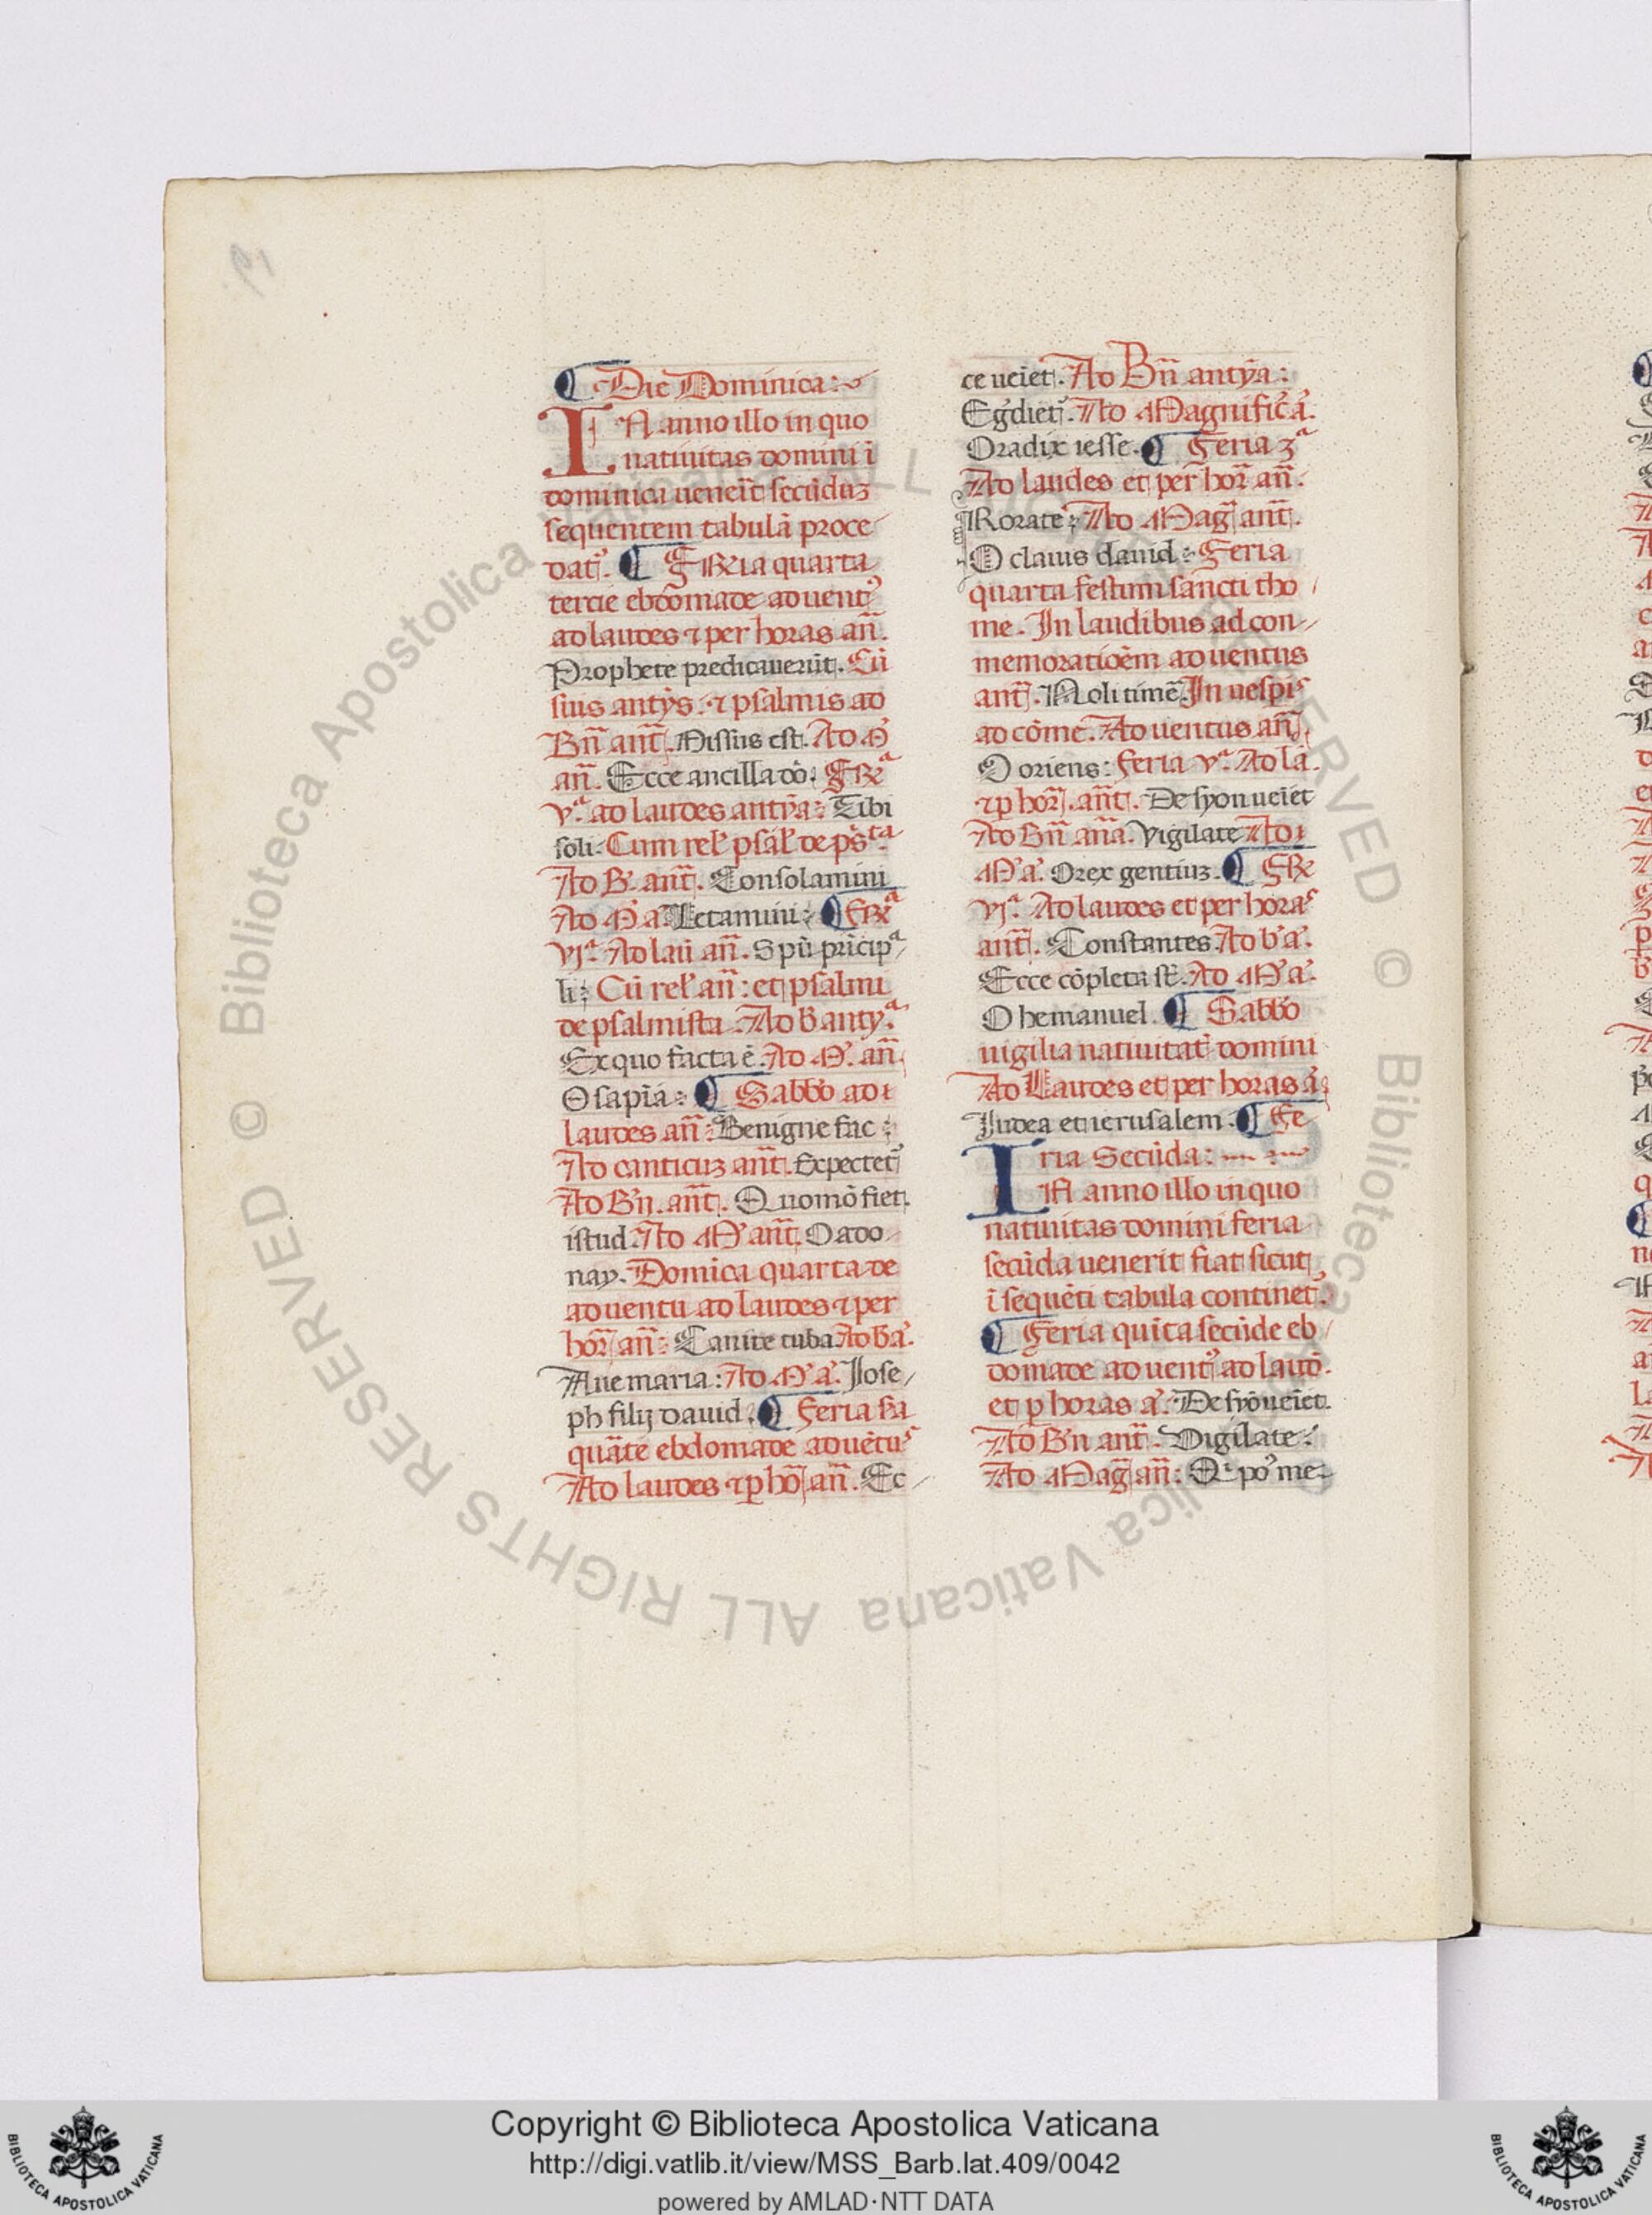 ¶ Die Dominica:
IN anno illo in quo
natiuitas domini ī
dominica ueneit̄ secūduꝫ
sequentem tabulā proce
dat᷒. ¶ FERia quarta
tercie ebdōmade aduent᷒
ad laudes ⁊ per horas an̄.
Prophete predicauerūt. Cū
suis antȳs. ⁊ psalmis ad
Bn̄ ant̄. Missus est. Ad M᷒
an̄. Ecce ancilla dō. FERᵃ
vᵃ. ad laudes antȳa: Tibi
soli. Cum rel̄ psal̄ de pṡᵗᵃ.
Ad B. ant̄. Consolamini
Ad M᷒ a᷒. Letamini: ¶ FERᵃ
vjᵃ. Ad lau an̄. Spū prīcipᵃ
li: Cū rel̄ an̄: et psalmi
de psalmista. Ad b anty.ᵃ
Ex quo facta ē. Ad M᷒. an̄
O sapīa: ¶ Sabb̄o ad
laudes an̄: Benigne fac:
Ad canticuꝫ ant̄. Expectet᷒
Ad Bn̄. ant̄. Quomō fiet
istud. Ad M᷒ ant̄. O ado
nay. Domīca quarta de
aduentu ad laudes ⁊ per
hor̄ an̄: Canite tuba. Ad b̄ a᷒.
Aue maria: Ad M᷒ a᷒. Jose
ph filij dauid. ¶ Feria sā
quāte ebdomade aduētu᷒
Ad laudes ⁊ p̱ hō an̄. Ec
ce ueīet. Ad Bn̄ antȳa:
Eg᷒diet᷒. Ad Magnific̄ a᷒.
O radix iesse. ¶ Feria 3ᵃ
Ad laudes et per hor̄ an̄.
Rorate: Ad Maḡ ant̄.
O clauis dauid: Feria
quarta festum sancti tho
me. In laudibus ad con
memoratiōem aduentus
ant̄. Noli timē. In uesp̱i᷒
ad cōme. Aduentus an̄
O oriens: feria vᵃ. Ad la.
⁊ p̱ hor̄. ant̄. De syon ueīet
Ad Bn̄ an̄a. Vigilate Ad
M᷒ a᷒. O rex gentiuꝫ. ¶ FER
vjᵃ. Ad laudes et per hora᷒
ant̄. Constantes. Ad b᷒ a᷒.
Ecce cōpleta st̄. Ad M᷒ a᷒.
O hemanuel. ¶ Sabb̄o
uigilia natiuitat̄ domini
Ad Laudes et per horas a᷒
Judea et ierusalem. ¶ Fe
ria Secūda:
IN anno illo in quo
natiuitas domini feria
secūda uenerit fiat sicut
ī sequēti tabula continet᷒.
¶ Feria quīta secūde eb
domade aduent᷒ ad laud.
et p̱ horas a᷒. De syō ueīet.
Ad Bn̄ ant̄. Vigilate:
Ad Maḡ an̄: Qⁱ po᷒ me
Copyright © Biblioteca Apostolica Vaticana
http://digi.vatlib.it/view/MSS_Barb.lat.409/0042
powered by AMLAD·NTT DATA
BIBLIOTECA APOSTOLICA VATICANA
BIBLIOTECA APOSTOLICA VATICANA
© Biblioteca Apostolica Vaticana ALL RIGHTS RESERVED © Biblioteca Apostolica Vaticana ALL RIGHTS RESERVED